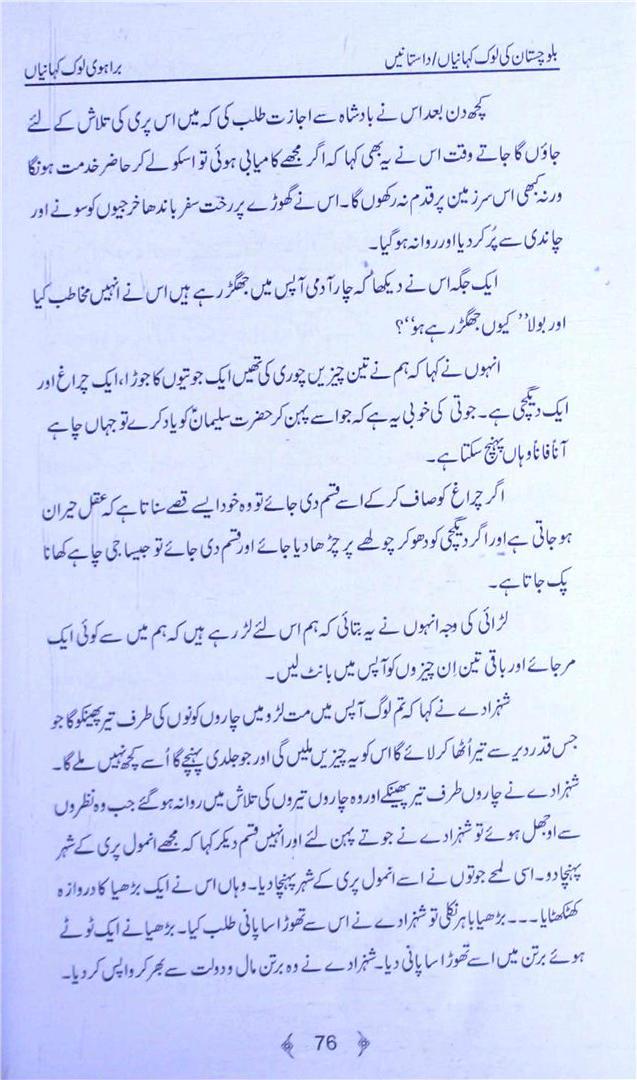 بلوچستان کی لوک کہانیاں/داستانیں
براہوی لوک کہانیاں
کچھ دن بعد اس نے بادشاہ سے اجازت طلب کی کہ میں اس پری کی تلاش کے لئے
جاؤں گا جاتے وقت اس نے یہ بھی کہا کہ اگر مجھے کامیابی ہوئی تو اسکو لے کر حاضر خدمت ہونگا
ورنہ کبھی اس سرزمین پر قدم نہ رکھوں گا۔ اس نے گھوڑے پر رخت سفر باندھا خرجیوں کو سونے اور
چاندی سے پُر کر دیا اور روانہ ہو گیا۔
ایک جگہ اس نے دیکھا کہ چار آدمی آپس میں جھگڑ رہے ہیں اس نے انہیں مخاطب کیا
اور بولا ’’کیوں جھگڑ رہے ہو‘‘؟
انہوں نے کہا کہ ہم نے تین چیزیں چوری کی تھیں ایک جوتیوں کا جوڑا، ایک چراغ اور
ایک دیگچی ہے۔ جوتی کی خوبی یہ ہے کہ جو اسے پہن کر حضرت سلیمانؑ کو یاد کرے تو جہاں چاہے
آناً فاناً وہاں پہنچ سکتا ہے۔
اگر چراغ کو صاف کر کے اسے قسم دی جائے تو وہ خود ایسے قصے سناتا ہے کہ عقل حیران
ہو جاتی ہے اور اگر دیگچی کو دھو کر چولھے پر چڑھا دیا جائے اور قسم دی جائے تو جیسا جی چاہے کھانا
پک جاتا ہے۔
لڑائی کی وجہ انہوں نے یہ بتائی کہ ہم اس لئے لڑ رہے ہیں کہ ہم میں سے کوئی ایک
مر جائے اور باقی تین اِن چیزوں کو آپس میں بانٹ لیں۔
شہزادے نے کہا کہ تم لوگ آپس میں مت لڑو میں چاروں کونوں کی طرف تیر پھینکو گا جو
جس قدر دیر سے تیر اُٹھا کر لائے گا اس کو یہ چیزیں ملیں گی اور جو جلدی پہنچے گا اُسے کچھ نہیں ملے گا۔
شہزادے نے چاروں طرف تیر پھینکے اور وہ چاروں تیروں کی تلاش میں روانہ ہو گئے جب وہ نظروں
سے اوجھل ہوئے تو شہزادے نے جوتے پہن لئے اور انہیں قسم دیکر کہا کہ مجھے انمول پری کے شہر
پہنچا دو۔ اسی لمحے جوتوں نے اسے انمول پری کے شہر پہنچا دیا۔ وہاں اس نے ایک بڑھیا کا دروازہ
کھٹکھٹایا۔۔۔ بڑھیا باہر نکلی تو شہزادے نے اس سے تھوڑا سا پانی طلب کیا۔ بڑھیا نے ایک ٹوٹے
ہوئے برتن میں اسے تھوڑا سا پانی دیا۔ شہزادے نے وہ برتن مال و دولت سے بھر کر واپس کر دیا۔
76